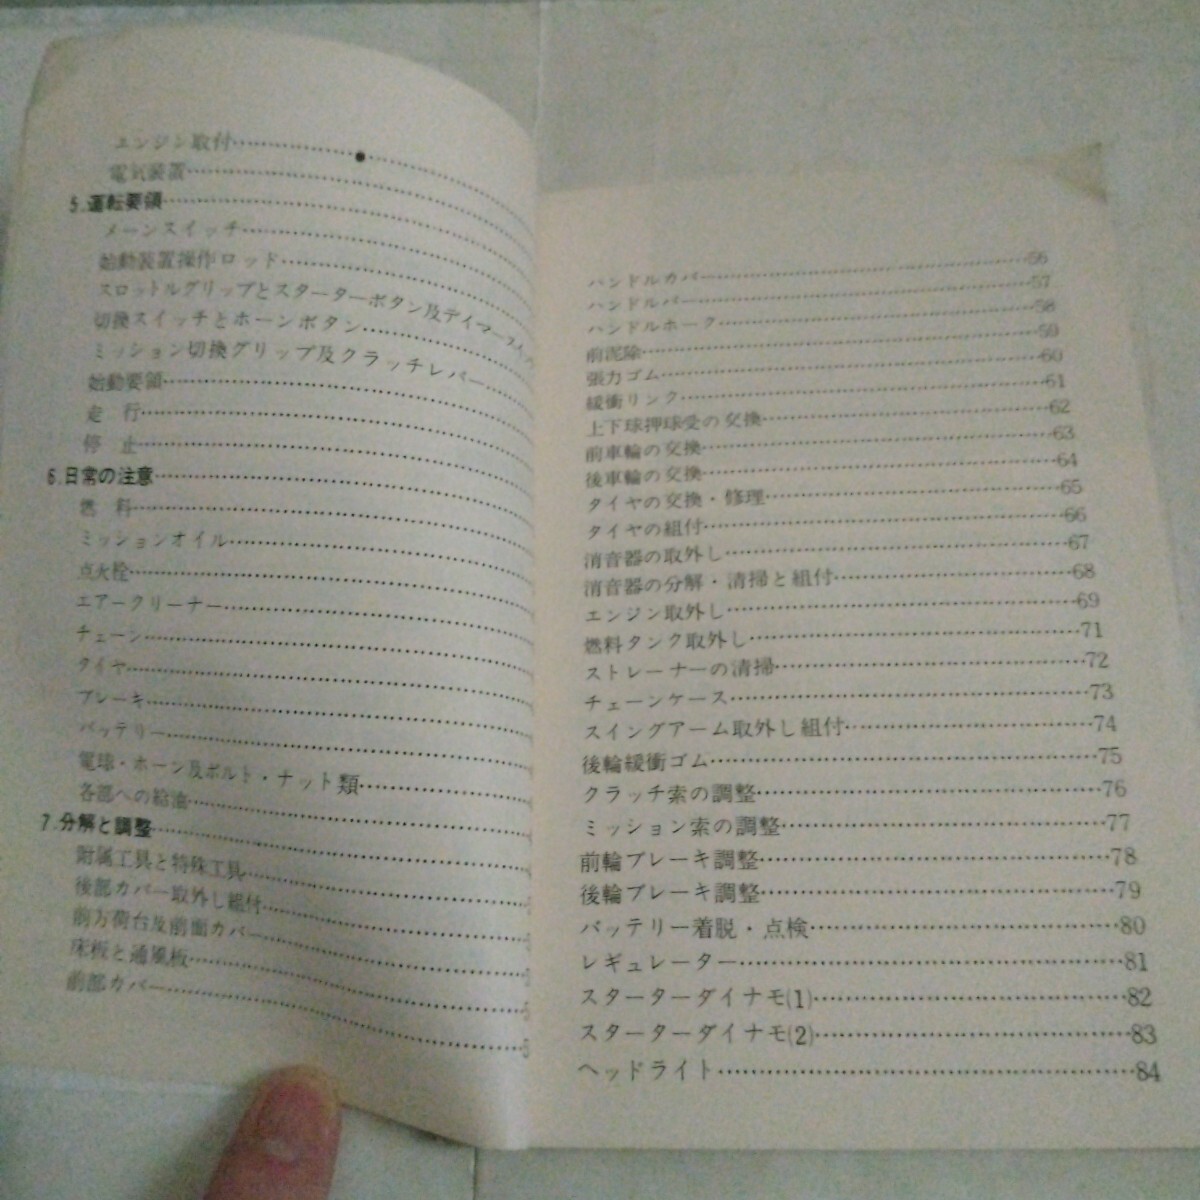 エンジン取付
電気装置
5.運転要領
メーンスイッチ
始動装置操作ロッド
スロットルグリップとスターターボタン及デイマースイッ
切換スイッチとホーンボタン
ミッション切換グリップ及クラッチレバー
始動要領
走 行
停 止
6.日常の注意
燃 料
ミッションオイル
点火栓
エアークリーナー
チェーン
タイヤ
ブレーキ
バッテリー
電球・ホーン及ボルト・ナット類
各部への給油
7.分解と調整
附属工具と特殊工具
後部カバー取外し組付
前方荷台及前面カバー
床板と通風板
前部カバー
ハンドルカバー 56
ハンドルバー 57
ハンドルホーク 58
前泥除 59
張力ゴム 60
緩衝リンク 61
上下球押球受の交換 62
前車輪の交換 63
後車輪の交換 64
タイヤの交換・修理 65
タイヤの組付 66
消音器の取外し 67
消音器の分解・清掃と組付 68
エンジン取外し 69
燃料タンク取外し 71
ストレーナーの清掃 72
チェーンケース 73
スイングアーム取外し組付 74
後輪緩衝ゴム 75
クラッチ索の調整 76
ミッション索の調整 77
前輪ブレーキ調整 78
後輪ブレーキ調整 79
バッテリー着脱・点検 80
レギュレーター 81
スターターダイナモ(1) 82
スターターダイナモ(2) 83
ヘッドライト 84